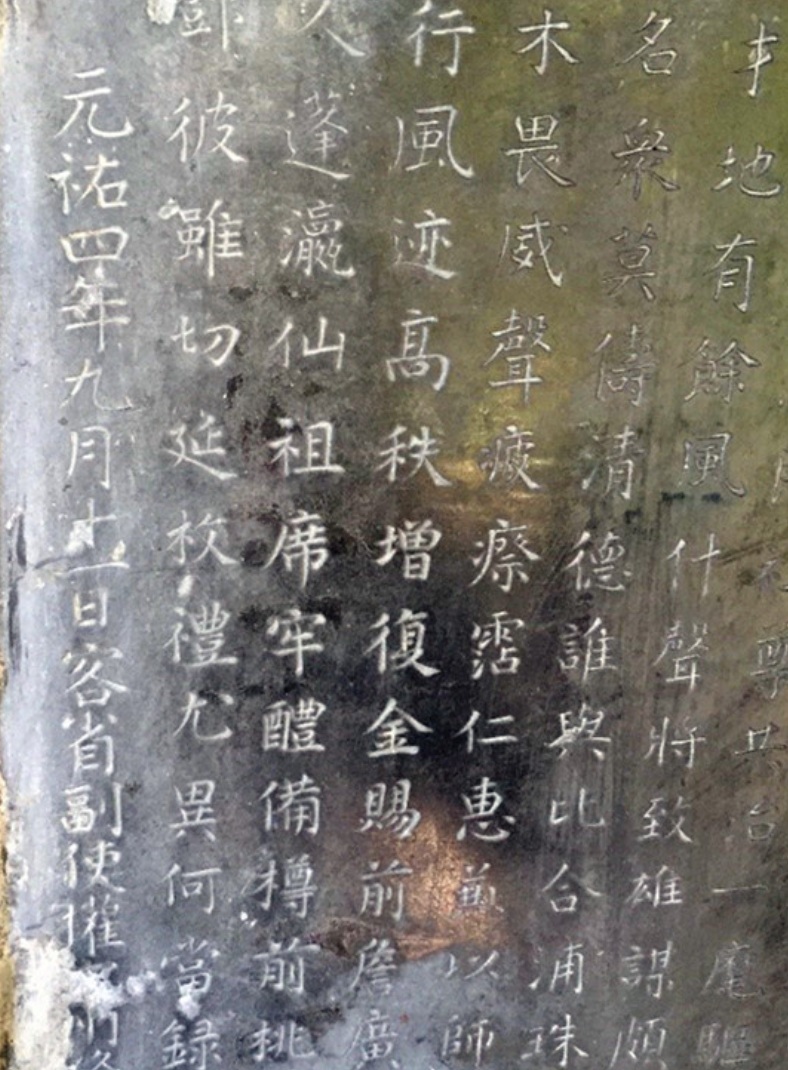 地有餘風 尊共治一麾
什聲將致雄謀
名衆莫儔清德誰與比合浦珠
木畏威聲疲瘵霑仁惠 以師
行風迹高秩增復金賜前詹廣
人蓬瀛仙祖席牢醴備樽前挑
彼雖切延枚禮尤異何當録
元祐四年九月十一日客省副使權